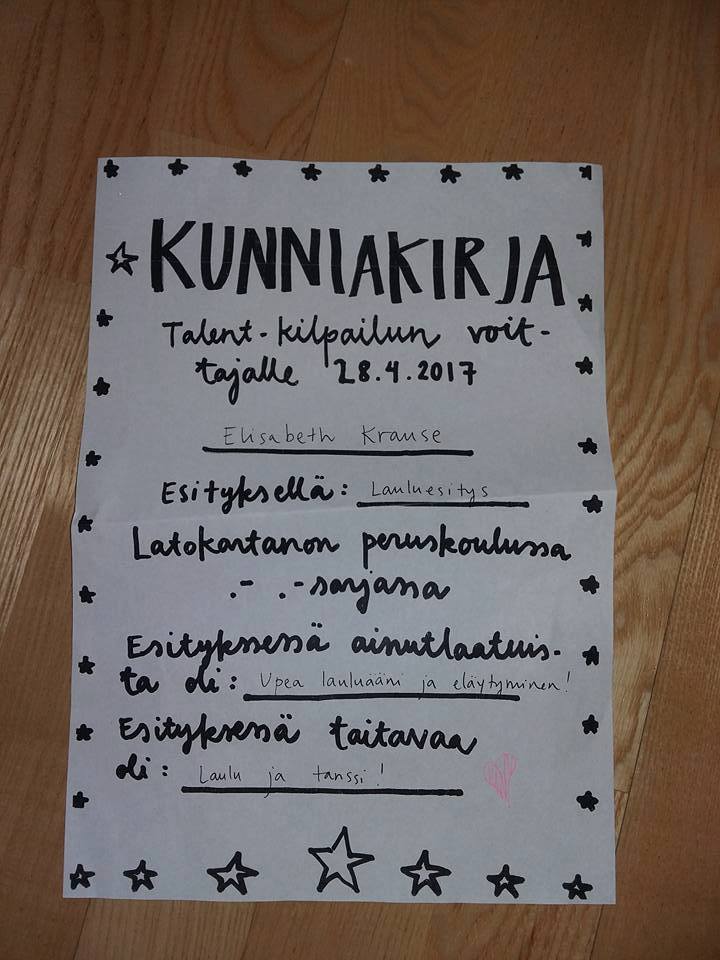 KUNNIAKIRJA
Talent-kilpailun voit-
tajalle 28.4.2017
Elisabeth Krause
Esityksellä: Lauluesitys
Latokartanon peruskoulussa
.- .-sarjassa
Esityksessä ainutlaatuis-
ta oli: Upea lauluääni ja eläytyminen!
Esityksessä taitavaa
oli: Laulu ja tanssi!